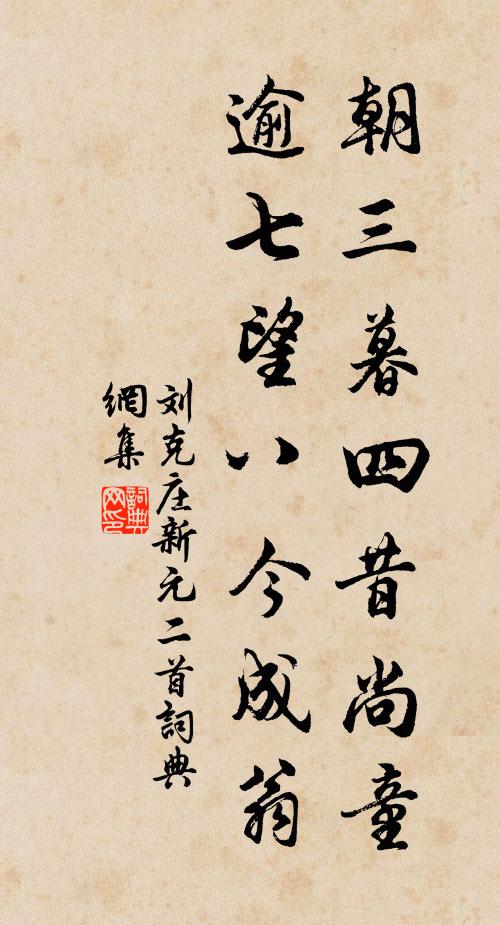 朝三暮四昔尚童
逾七望八今成翁
刘克庄新元二首詞典
網集
詞典
网印